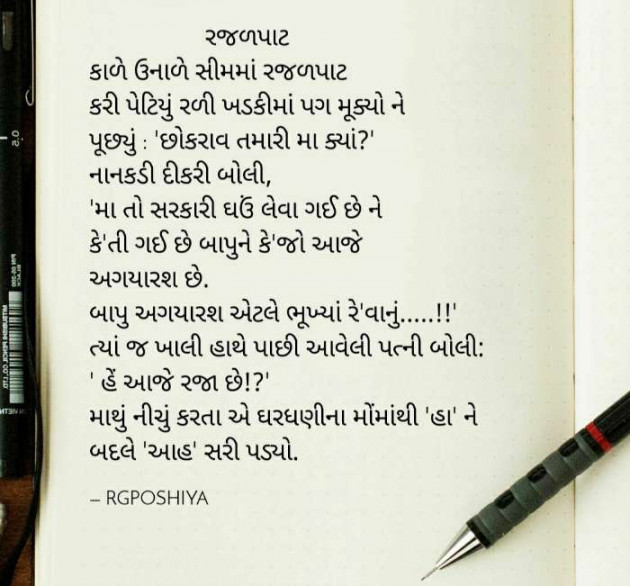 રજળપાટ
કાળે ઉનાળે સીમમાં રજળપાટ
કરી પેટિયું રળી ખડકીમાં પગ મૂક્યો ને
પૂછ્યું : 'છોકરાવ તમારી મા ક્યાં?'
નાનકડી દીકરી બોલી,
'મા તો સરકારી ઘઉં લેવા ગઈ છે ને
કે'તી ગઈ છે બાપુને કે'જો આજે
અગયારશ છે.
બાપુ અગયારશ એટલે ભૂખ્યાં રે'વાનું.....!!'
ત્યાં જ ખાલી હાથે પાછી આવેલી પત્ની બોલી:
' હેં આજે રજા છે!?'
માથું નીચું કરતા એ ઘરધણીના મોંમાંથી 'હા' ને
બદલે 'આહ' સરી પડ્યો.
– RGPOSHIYA